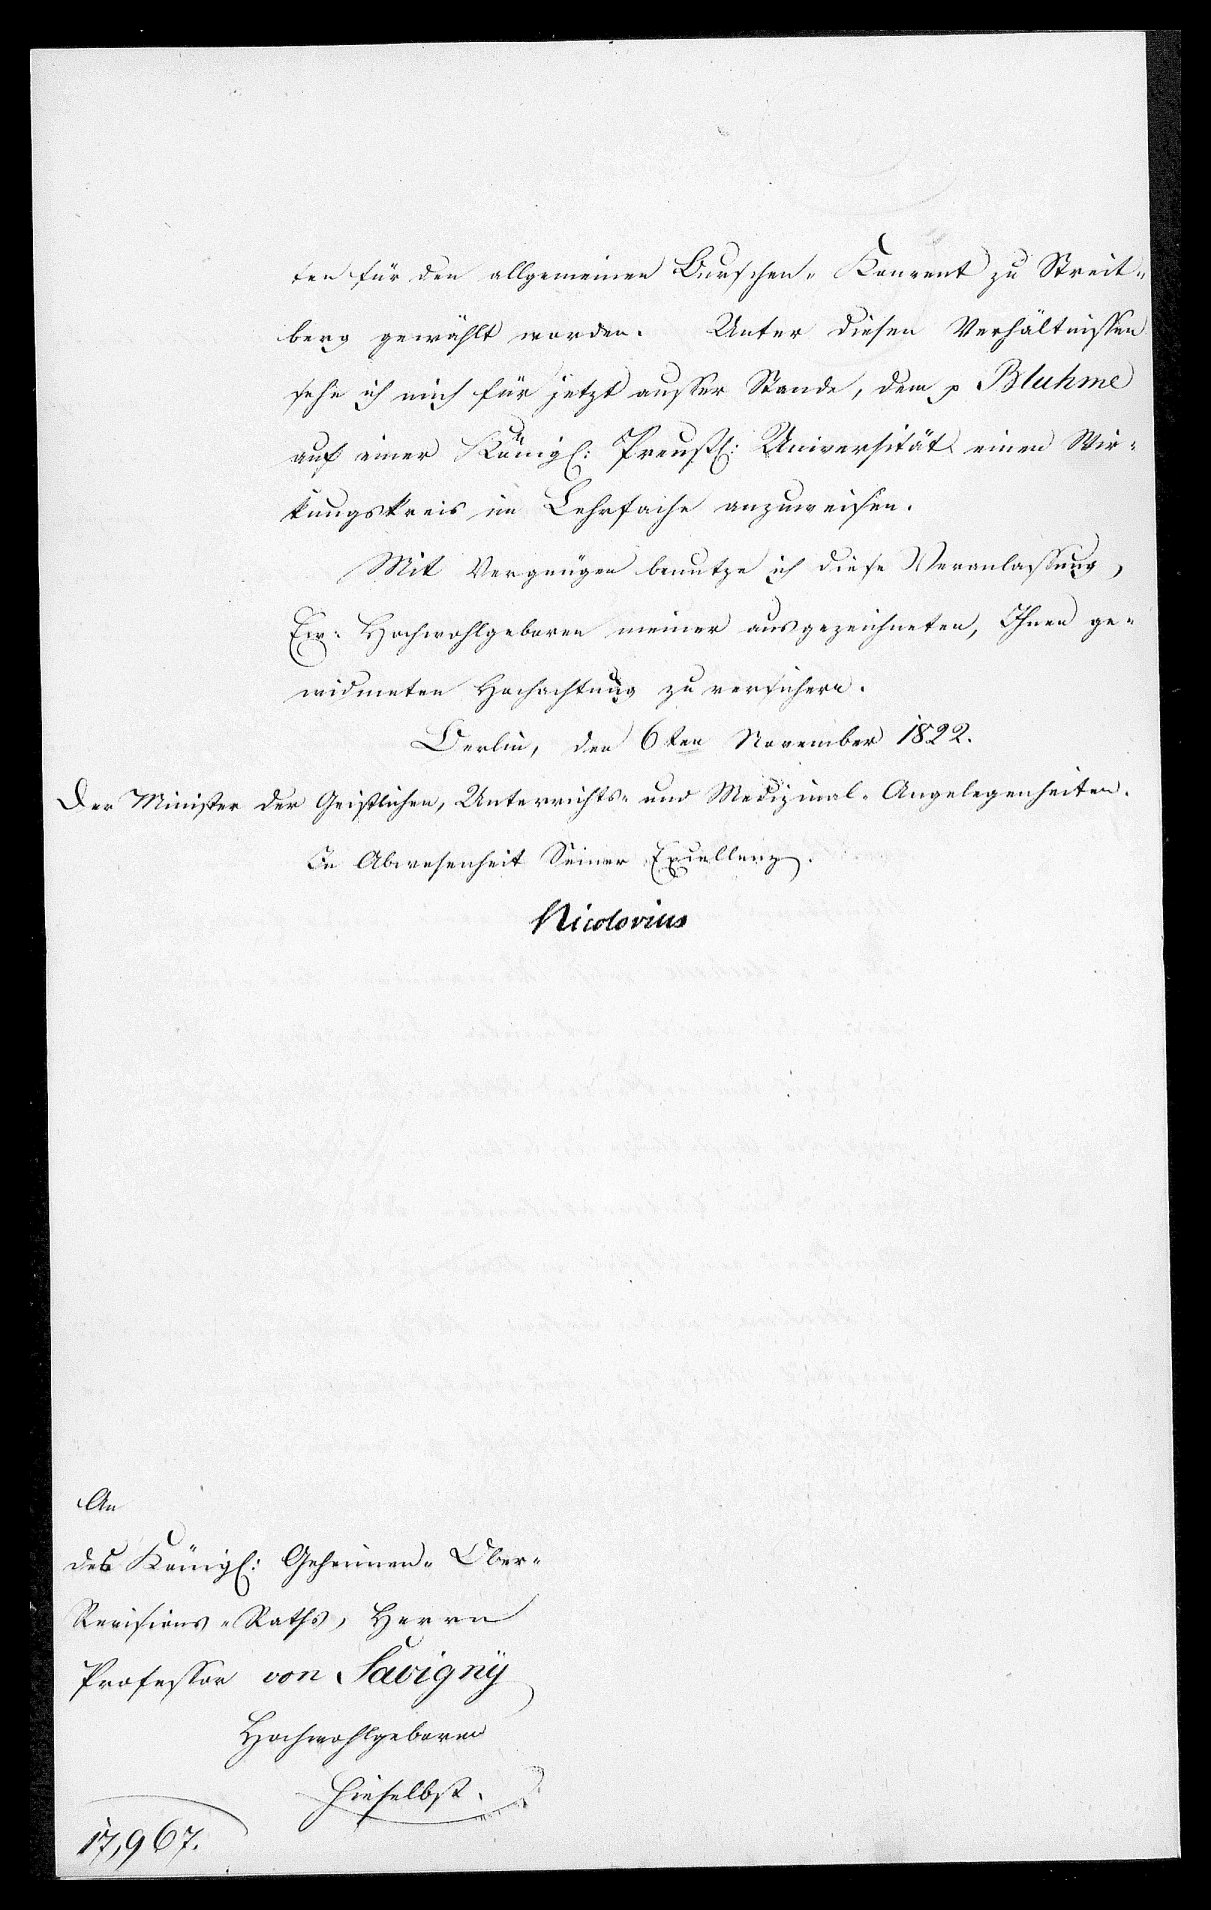 ten für den allgemeinen Burschen-Konvent zu Streit-
berg gewählt worden. Unter diesen Verhältnissen
sehe ich mich für jetzt ausser Stande, dem p Bluhme
auf einer Königl: Preußl: Universität einen Wir-
kungskreis im Lehrfache anzuweisen.
Mit Vergnügen benutze ich diese Veranlassung,
Ew: Hochwohlgeboren meiner ausgezeichneten, Ihnen ge-
widmeten Hochachtung zu versichern.
Berlin, den 6ten November 1822.
Der Minister der Geistlichen, Unterrichts- und Medizinal-Angelegenheiten.
In Abwesenheit Seiner Excellenz.
Nicolovius
An
des Königl: Geheimen-Ober-
Revisions-Raths, Herrn
Professor von Savigny
Hochwohlgeboren
hieselbst.
17,967.